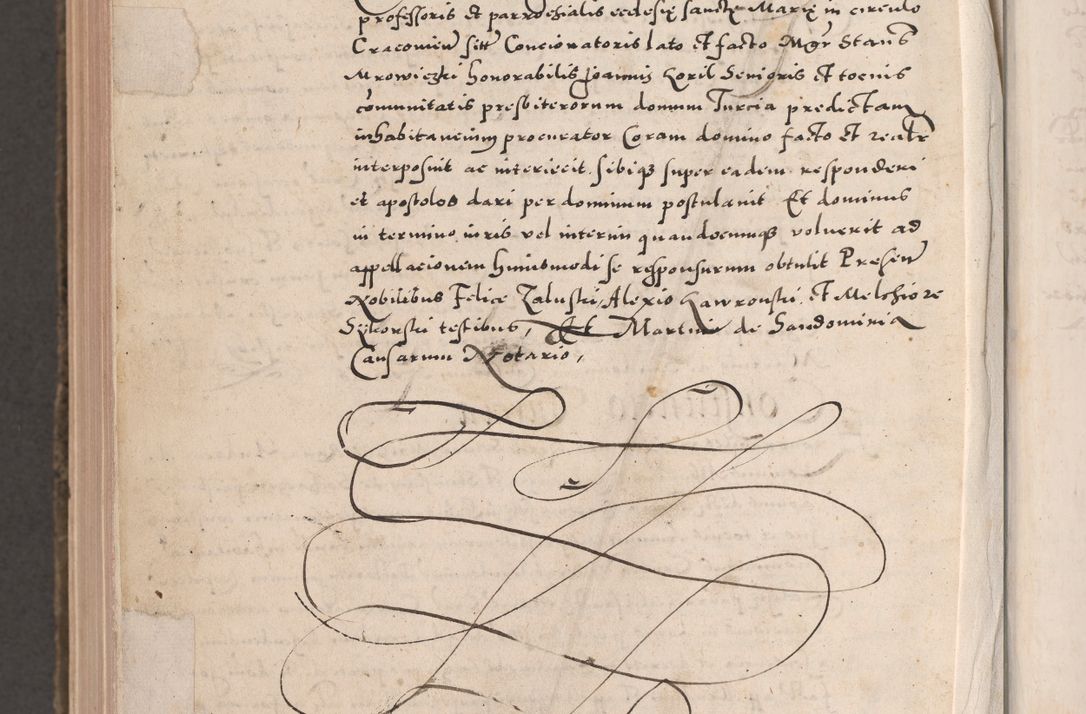 professoris et parrochialis ecclesię sanctę Marię in circulo
Cracovien sitę Concionatoris lato et facto Mgr Stanis
Mrowiczki honorabilis Joannis Koril Senioris et tocius
communitatis presbiterorum domum Turcia predictam
inhabitancium procurator Coram domino facto et realr
interposuit ac interiecit sibique super eadem responderi
et apostolos dari per dominum postulavit Et dominus
in termino iuris vel interim quandocumque voluerit ad
appellacionem huiusmodi se responsurum obtulit Presen
Nobilibus Felice Zaluski, Alexio Gawronski et Melchiore
Sikorski testibus, Et Martino de Sandomiria
Causarum Notario,